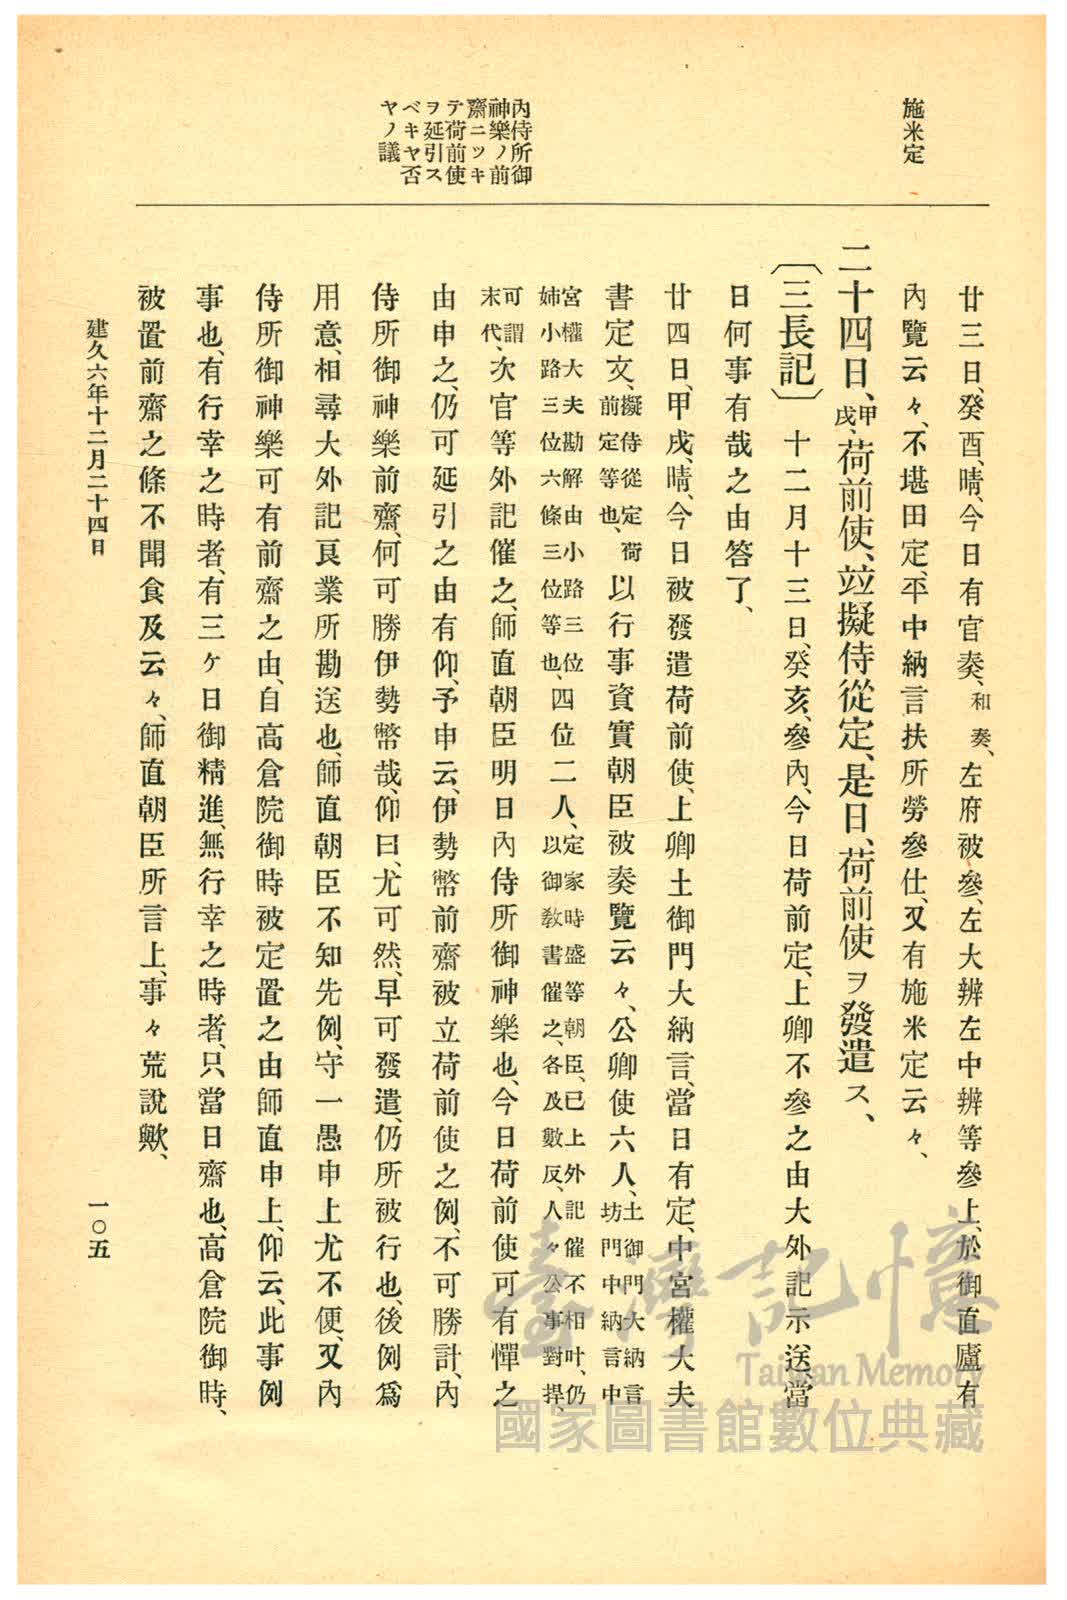 施米定
內侍所御
神樂ノ前
齋ニツキ
テ荷前使
ヲ延引ス
ベキヤ否
ヤノ議
廿三日、癸酉、晴、今日有官奏、和奏、左府被參、左大辨左中辨等參上、於御直廬有
內覽云々、不堪田定、平中納言扶所勞參仕、又有施米定云々、
二十四日、甲戌、荷前使、竝擬侍從定、是日、荷前使ヲ發遣ス、
〔三長記〕 十二月十三日、癸亥、參內、今日荷前定、上卿不參之由大外記示送、當
日何事有哉之由答了、
廿四日、甲戌、晴、今日被發遣荷前使、上卿土御門大納言、當日有定、中宮權大夫
書定文、擬侍從定荷前定等也、以行事資實朝臣被奏覽云々、公卿使六人、土御門大納言坊門中納言中
宮權大夫勘解由小路三位姉小路三位六條三位等也、四位二人、定家時盛等朝臣、已上外記催不相叶、仍以御教書催之、各及數反、人々公事對捍、
可謂末代、次官等外記催之、師直朝臣明日內侍所御神樂也、今日荷前使可有憚之
由申之、仍可延引之由有仰、予申云、伊勢幣前齋被立荷前使之例、不可勝計、內
侍所御神樂前齋、何可勝伊勢幣哉、仰曰、尤可然、早可發遣、仍所被行也、後例爲
用意、相尋大外記良業所勘送也、師直朝臣不知先例、守一愚申上尤不便、又內
侍所御神樂可有前齋之由、自高倉院御時被定置之由師直申上、仰云、此事例
事也、有行幸之時者、有三ケ日御精進、無行幸之時者、只當日齋也、高倉院御時、
被置前齋之條不聞食及云々、師直朝臣所言上、事々荒說歟、
建久六年十二月二十四日
一〇五
臺灣記憶
Taiwan Memory
國家圖書館數位典藏